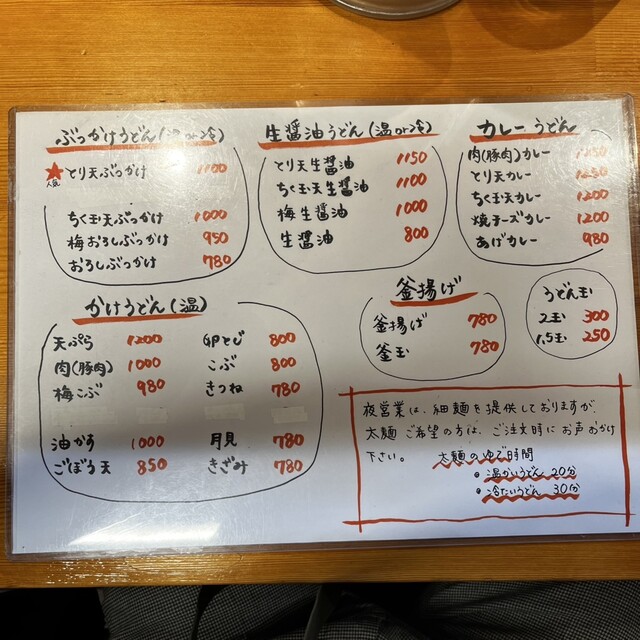 ぶっかけうどん(温or冷)
★人気 とり天ぶっかけ 1100
ちく玉天ぶっかけ 1000
梅おろしぶっかけ 950
おろしぶっかけ 780
生醤油うどん(温or冷)
とり天生醤油 1150
ちく玉天生醤油 1100
梅生醤油 1000
生醤油 800
カレーうどん
肉(豚肉)カレー
とり天カレー 1250
ちく玉天カレー 1200
焼チーズカレー 1200
あげカレー 980
かけうどん(温)
天ぷら 1200
肉(豚肉) 1000
梅こぶ 980
油かす 1000
ごぼう天 850
卵とじ 800
こぶ 800
きつね 780
月見 780
きざみ 780
釜揚げ
釜揚げ 780
釜玉 780
うどん玉
2玉 300
1.5玉 250
夜営業は、細麺を提供しておりますが、
太麺ご希望の方は、ご注文時にお声おかけ
下さい。 太麺のゆで時間
•温かいうどん 20分
•冷たいうどん 30分